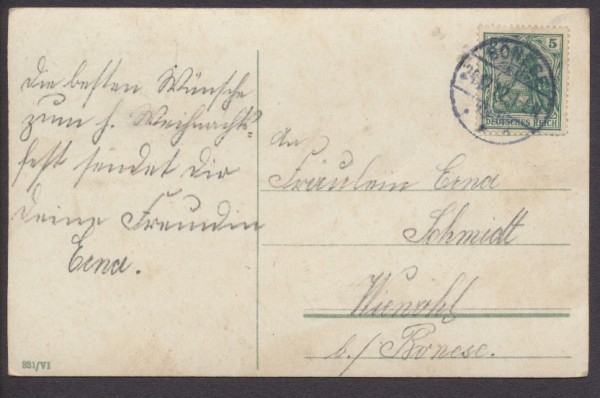 Die besten Wünsche
zum h. Weihnachts-
fest sendet Dir
Deine Freundin
Erna.
331/VI
5
BONESE
DEUTSCHES REICH
An
Fräulein Erna
Schmidt
Wiewohl
b./Bonese.